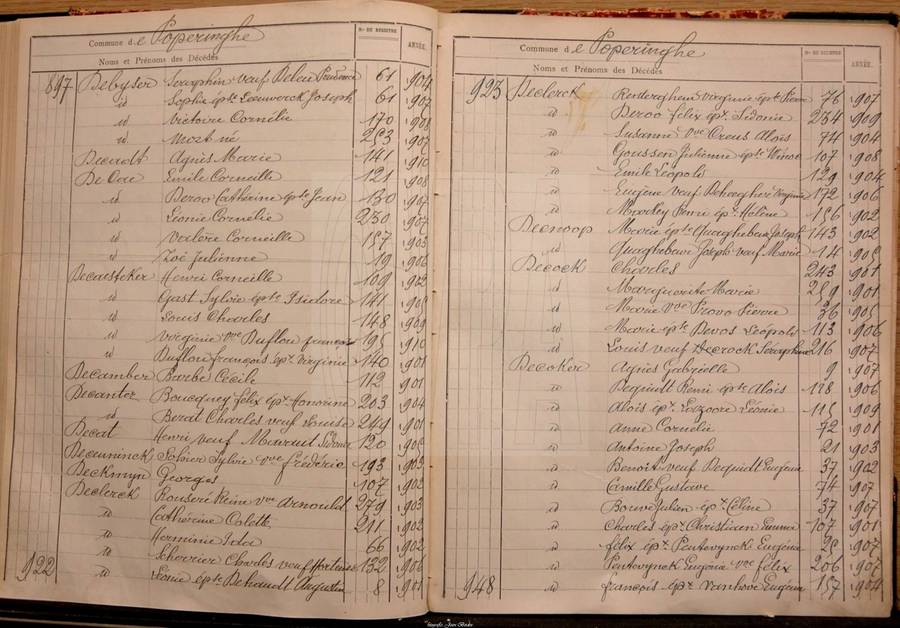 Commune de Poperinghe
Noms et Prénoms des Décédés
Nos DU REGISTRE
ANNÉE.
897 Debyser Séraphin veuf Deleu Prudence 61 1904
id Sophie épse Leeuwerck Joseph 61 1907
id Victoire Cornélie 170 1908
id Mort né 253 1907
Agnès Marie 141 1910
Emile Corneille 121 1908
id Deroo Cathérine épse Jean 130 1907
id Léonie Cornélie 230 1907
id Corneille 157 1903
id Zoé Julienne 19 1906
Decaesteker Henri Corneille 109 1902
id Gust Sylvie épse Isidore 141 1905
id Louis Charles 148 1909
id Virginie vve Duflou François 195 1910
id Duflou François épx Virginie 140 1901
Decamber Barbe Cécile 112 1901
Decanter Boucquey Félix épx Honorine 203 1904
id Charles veuf 249 1901
Decat Henri veuf 120 1905
Deceuninck Sohier Sylvie vve Frédéric 193 1903
Deckmyn Georges 107 1902
Declerck Reine vve Arnould 279 1903
id Cathérine Colette 211 1902
id Herminie Ida 66 1902
id Charles veuf Hortense 132 1906
922 id Léonie épse Dehaudt Augustin 8 1901
Commune de Poperinghe
Noms et Prénoms des Décédés
Nos DU REGISTRE
ANNÉE.
923 Declerck Virginie épse Pierre 76 1907
id Deroo Félix épx Sidonie 234 1909
id Susanne vve Creus Aloïs 74 1904
id Goussen Julienne épse 107 1908
id Emile Léopold 129 1904
id Eugène veuf Dehaeghere Virginie 172 1906
id Henri épx Hélène 156 1902
Decnoop Marie épse Quaghebeur Joseph 143 1902
id Quaghebeur Joseph veuf Marie 14 1905
Decock Charles 243 1901
id Marguerite Marie 259 1901
id Marie vve Provo Pierre 36 1905
id Marie épse Devos Léopold 113 1906
id Louis veuf Decrock Séraphine 216 1907
Decoker Agnès Gabrielle 9 1907
id Dequidt Remi épse Aloïs 118 1906
id Aloïs épx Léonie 115 1909
id Anne Cornélie 72 1901
id Antoine Joseph 21 1903
id Benoît veuf Dequidt Eugénie 37 1902
id Camille Gustave 74 1907
id Julien épx Céline 37 1907
id Charles épx Christiaen Emma 107 1901
id Félix épx Pentevynck Eugénie 1907
id Pentevynck Eugénie vve Félix 206 1907
948 id François épx Vanhove Eugénie 157 1904